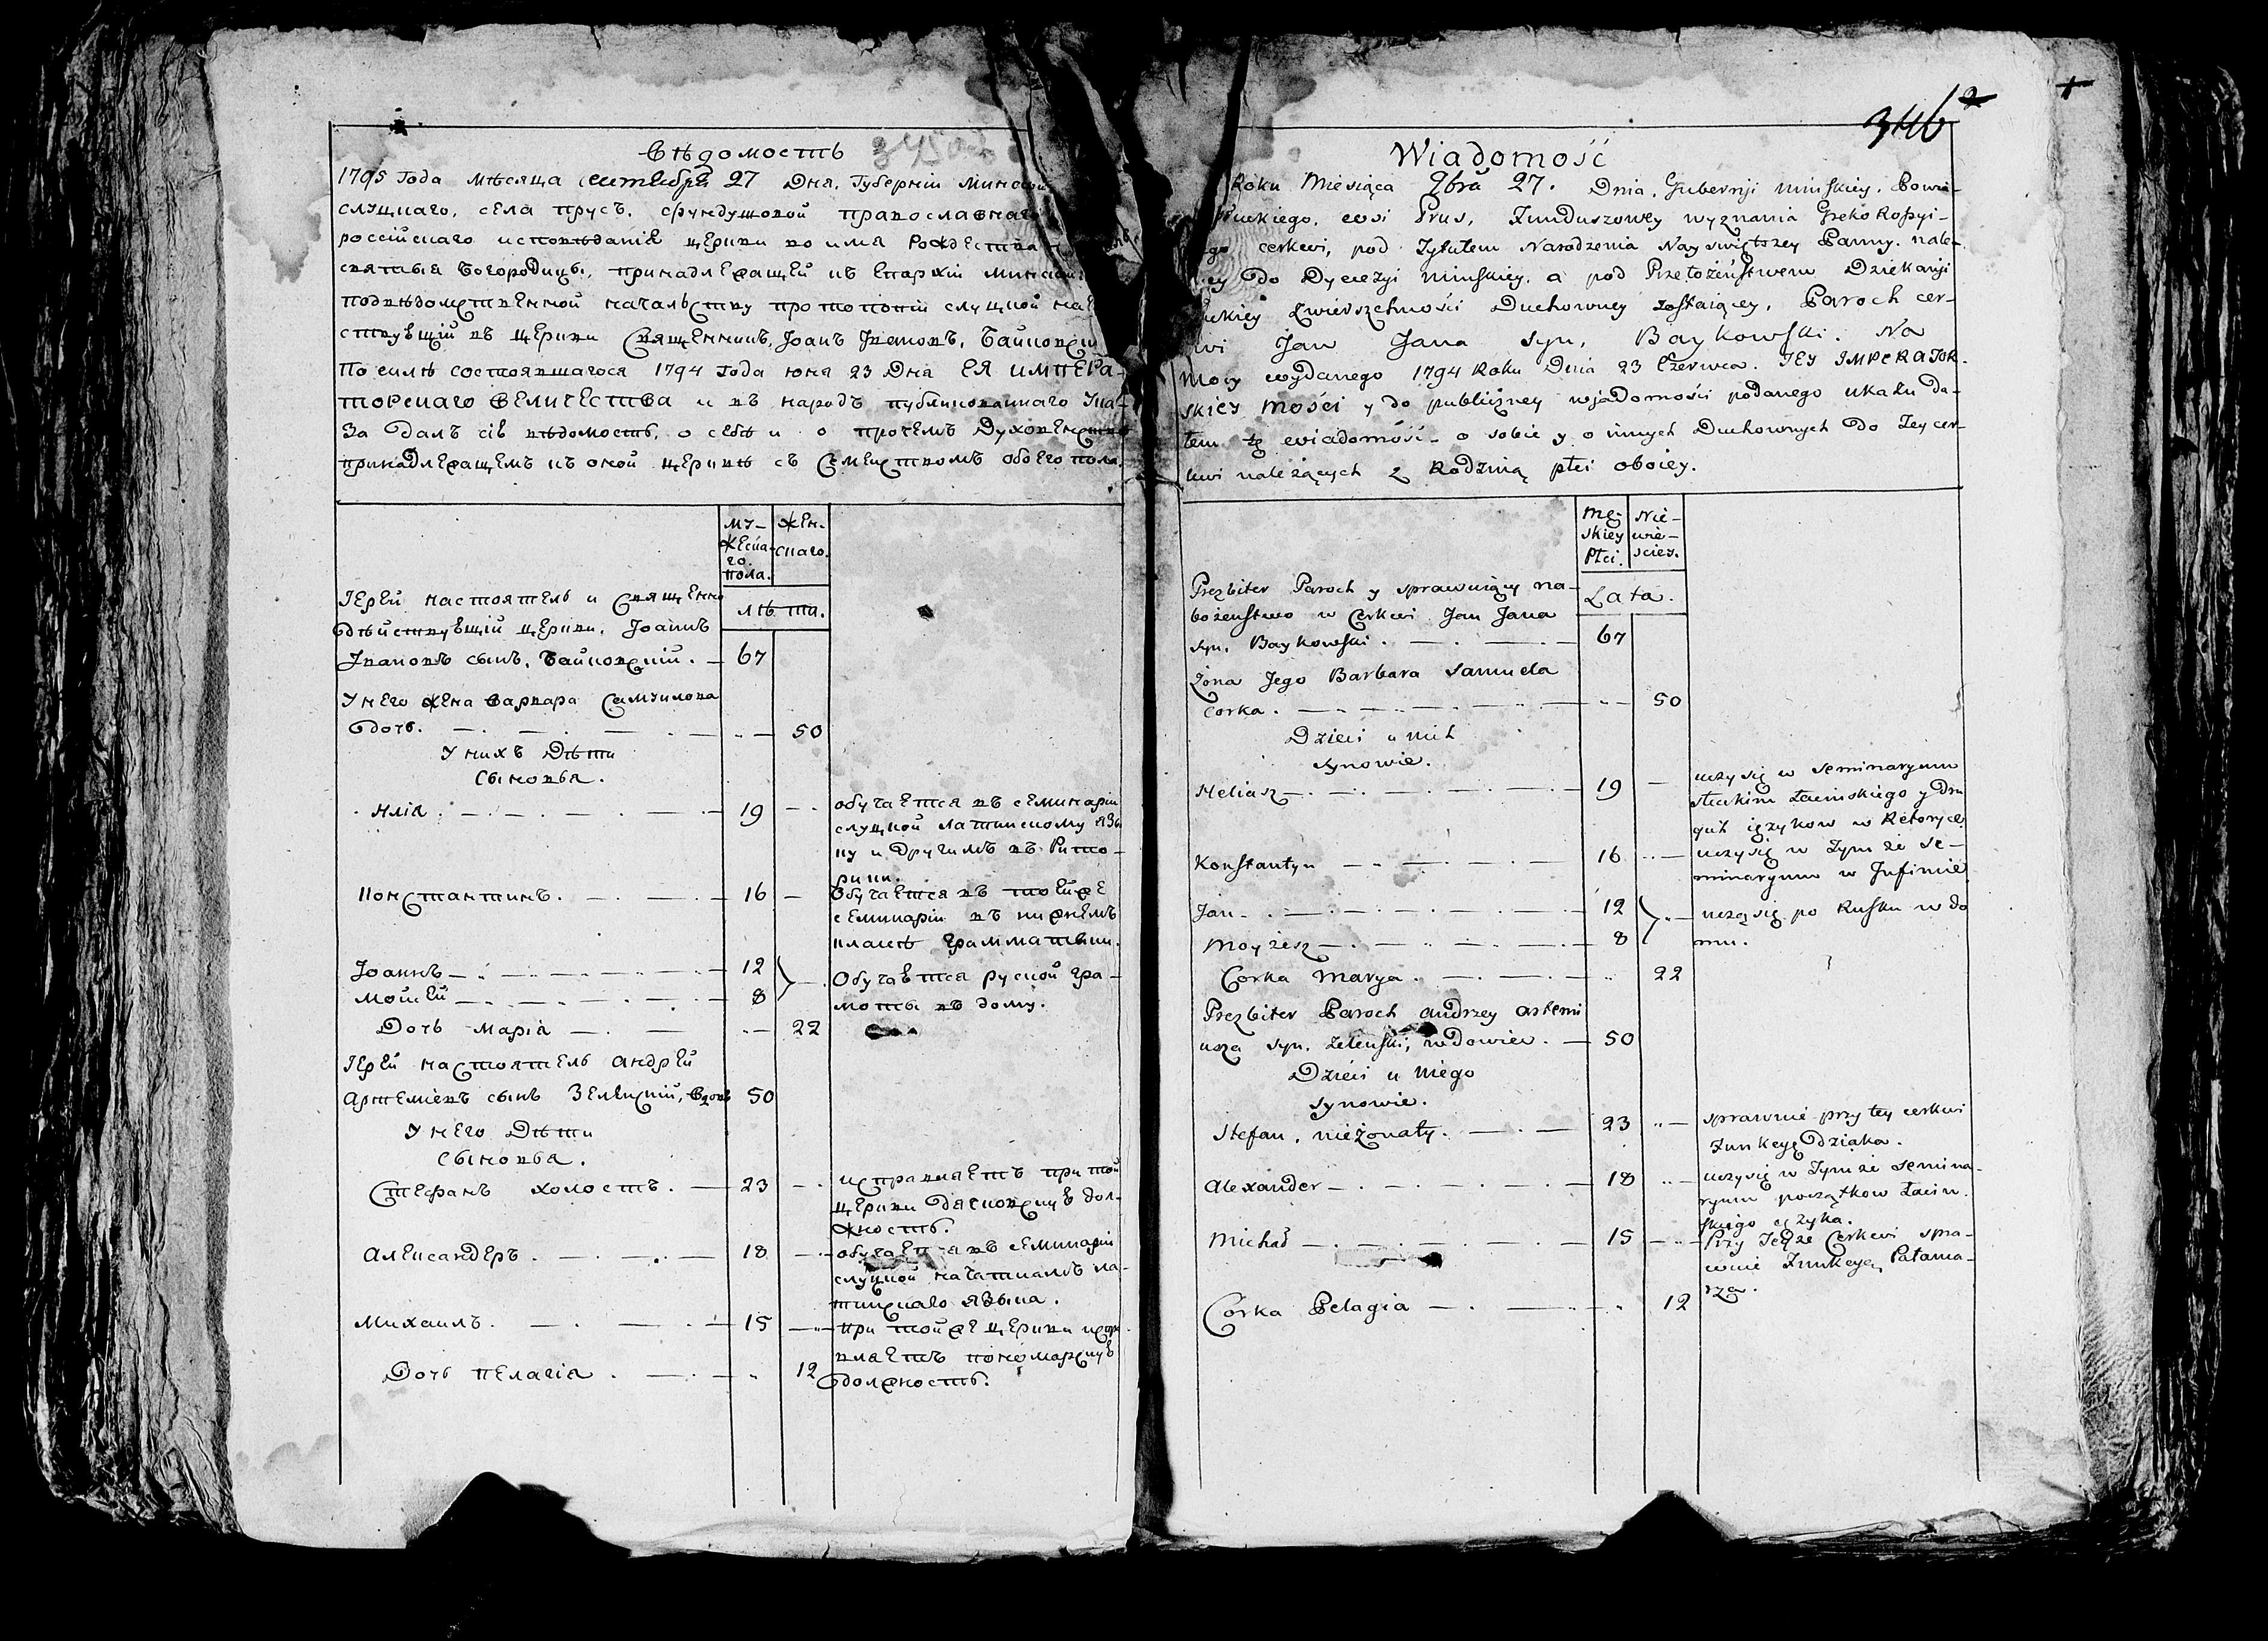 Вѣдомость
1795 Года Мѣсяца сентебря 27 Дня, Губерніи Минской
слуцкаго, села Прусъ, фундушовой православнаго
россійскаго исповѣданія церкви во имя Рождества
святыя Богородицы, принадлежащей къ Епархіи Минской
подвѣдомственной начальству протопопіи слуцкой
ствующій въ церкви Священникъ, Іоанъ Івановъ, Байковскій
По силѣ состоявшагося 1794 года юня 23 Дня ЕЯ ИМПЕРА-
ТОРСКАГО ВЕЛИЧЕСТВА и въ народъ публикованнаго Ука-
за далъ сію вѣдомость, о себѣ и о прочемъ Духовенствѣ
принадлежащемъ къ оной церквѣ съ Семействомъ обоего пола.
му-
жеска-
го
пола.
жен-
скаго.
Лѣти.
Іерей настоятель и Священно
дѣйствующій церкви, Іоаннъ
Івановъ сынъ, Байковскій. — 67
У него жена Варвара Самуилова
дочь. — 50
У нихъ Дѣти
Сыновья.
Илія. — 19 — обучается въ семинаріи
слуцкой латинскому язы
ку и другимъ въ Рито-
рики.
Константинъ. — 16 — Обучается въ тойже
семинаріи въ нижнемъ
класѣ грамматики.
Іоаннъ — 12
Мойсей — 8
Обучаются руской гра-
моты въ дому.
Дочь Марія — 22
Іерей настоятель Андрей
Артеміевъ сынъ Зеленскій, вдовъ 50
У него Дѣти
Сыновья.
Стефанъ холостъ. — 23 — исправляетъ при той
церкви дяковскую дол-
жность.
Александеръ. — 18 — обучается въ семинаріи
слуцкой начаткамъ ла-
тинскаго языка.
Михаилъ. — 15 — при тойже церкви испра
вляетъ пономарскую
должность.
Дочь Пелагія. — 12
346
Wiadomość
Roku Miesiąca 9bra 27. Dnia, Gubernji Minskiey, Powia-
Słuckiego, wsi Prus, Funduszowey wyznania Greko Rossyi-
go cerkwi, pod Tytułem Narodzenia Nayświętszey Panny, nale-
cey do Dyecezyi Minskiey, a pod Przełożeństwem Dziekanji
uckiey Zwierszchności Duchowney zostaiącey, Paroch cer-
kwi Jan Jana syn, Baykowski. Na
Mocy wydanego 1794 Roku Dnia 23 Czerwca. JEY IMPERATOR-
SKIEY MOŚCI y do publiczney wjadomości podanego ukazu da-
łem tę wiadomość o sobie y o innych Duchownych do Tey cer-
kwi należących z Rodziną płci oboiey.
Mę-
skiey
Płci.
Nie-
wie-
sciey.
Lata.
Prezbiter Paroch y sprawuiący na-
bożeństwo w Cerkwi Jan Jana
syn, Baykowski. — 67
Żona Jego Barbara Samuela
corka. — 50
Dzieci u nich
synowie.
Heliasz — 19 — uczy się w Seminaryum
słuckim Łacinskiego y dru
gich ięzykow w Retoryce
Konstantyn — 16 — uczy się w Tymże Se-
minaryum w Infimie
Jan — 12
Moyżesz — 8
uczą się po Rusku w do
mu.
Corka Marya. — 22
Prezbiter Paroch Andrzey Artemi
usza syn, Zelenski, wdowiec. — 50
Dzieci u Niego
synowie.
Stefan, nieżonaty. — 23 — sprawuie przy tey cerkwi
Funkcyę Dziaka.
Alexander — 18 — uczy się w Tymże Semina-
ryum początkow Łacin-
skiego ęzyka.
Michał — 15 — Przy Teyże Cerkwi spra-
wuie Funkcyę Pałama-
rza.
Corka Pelagia — 12